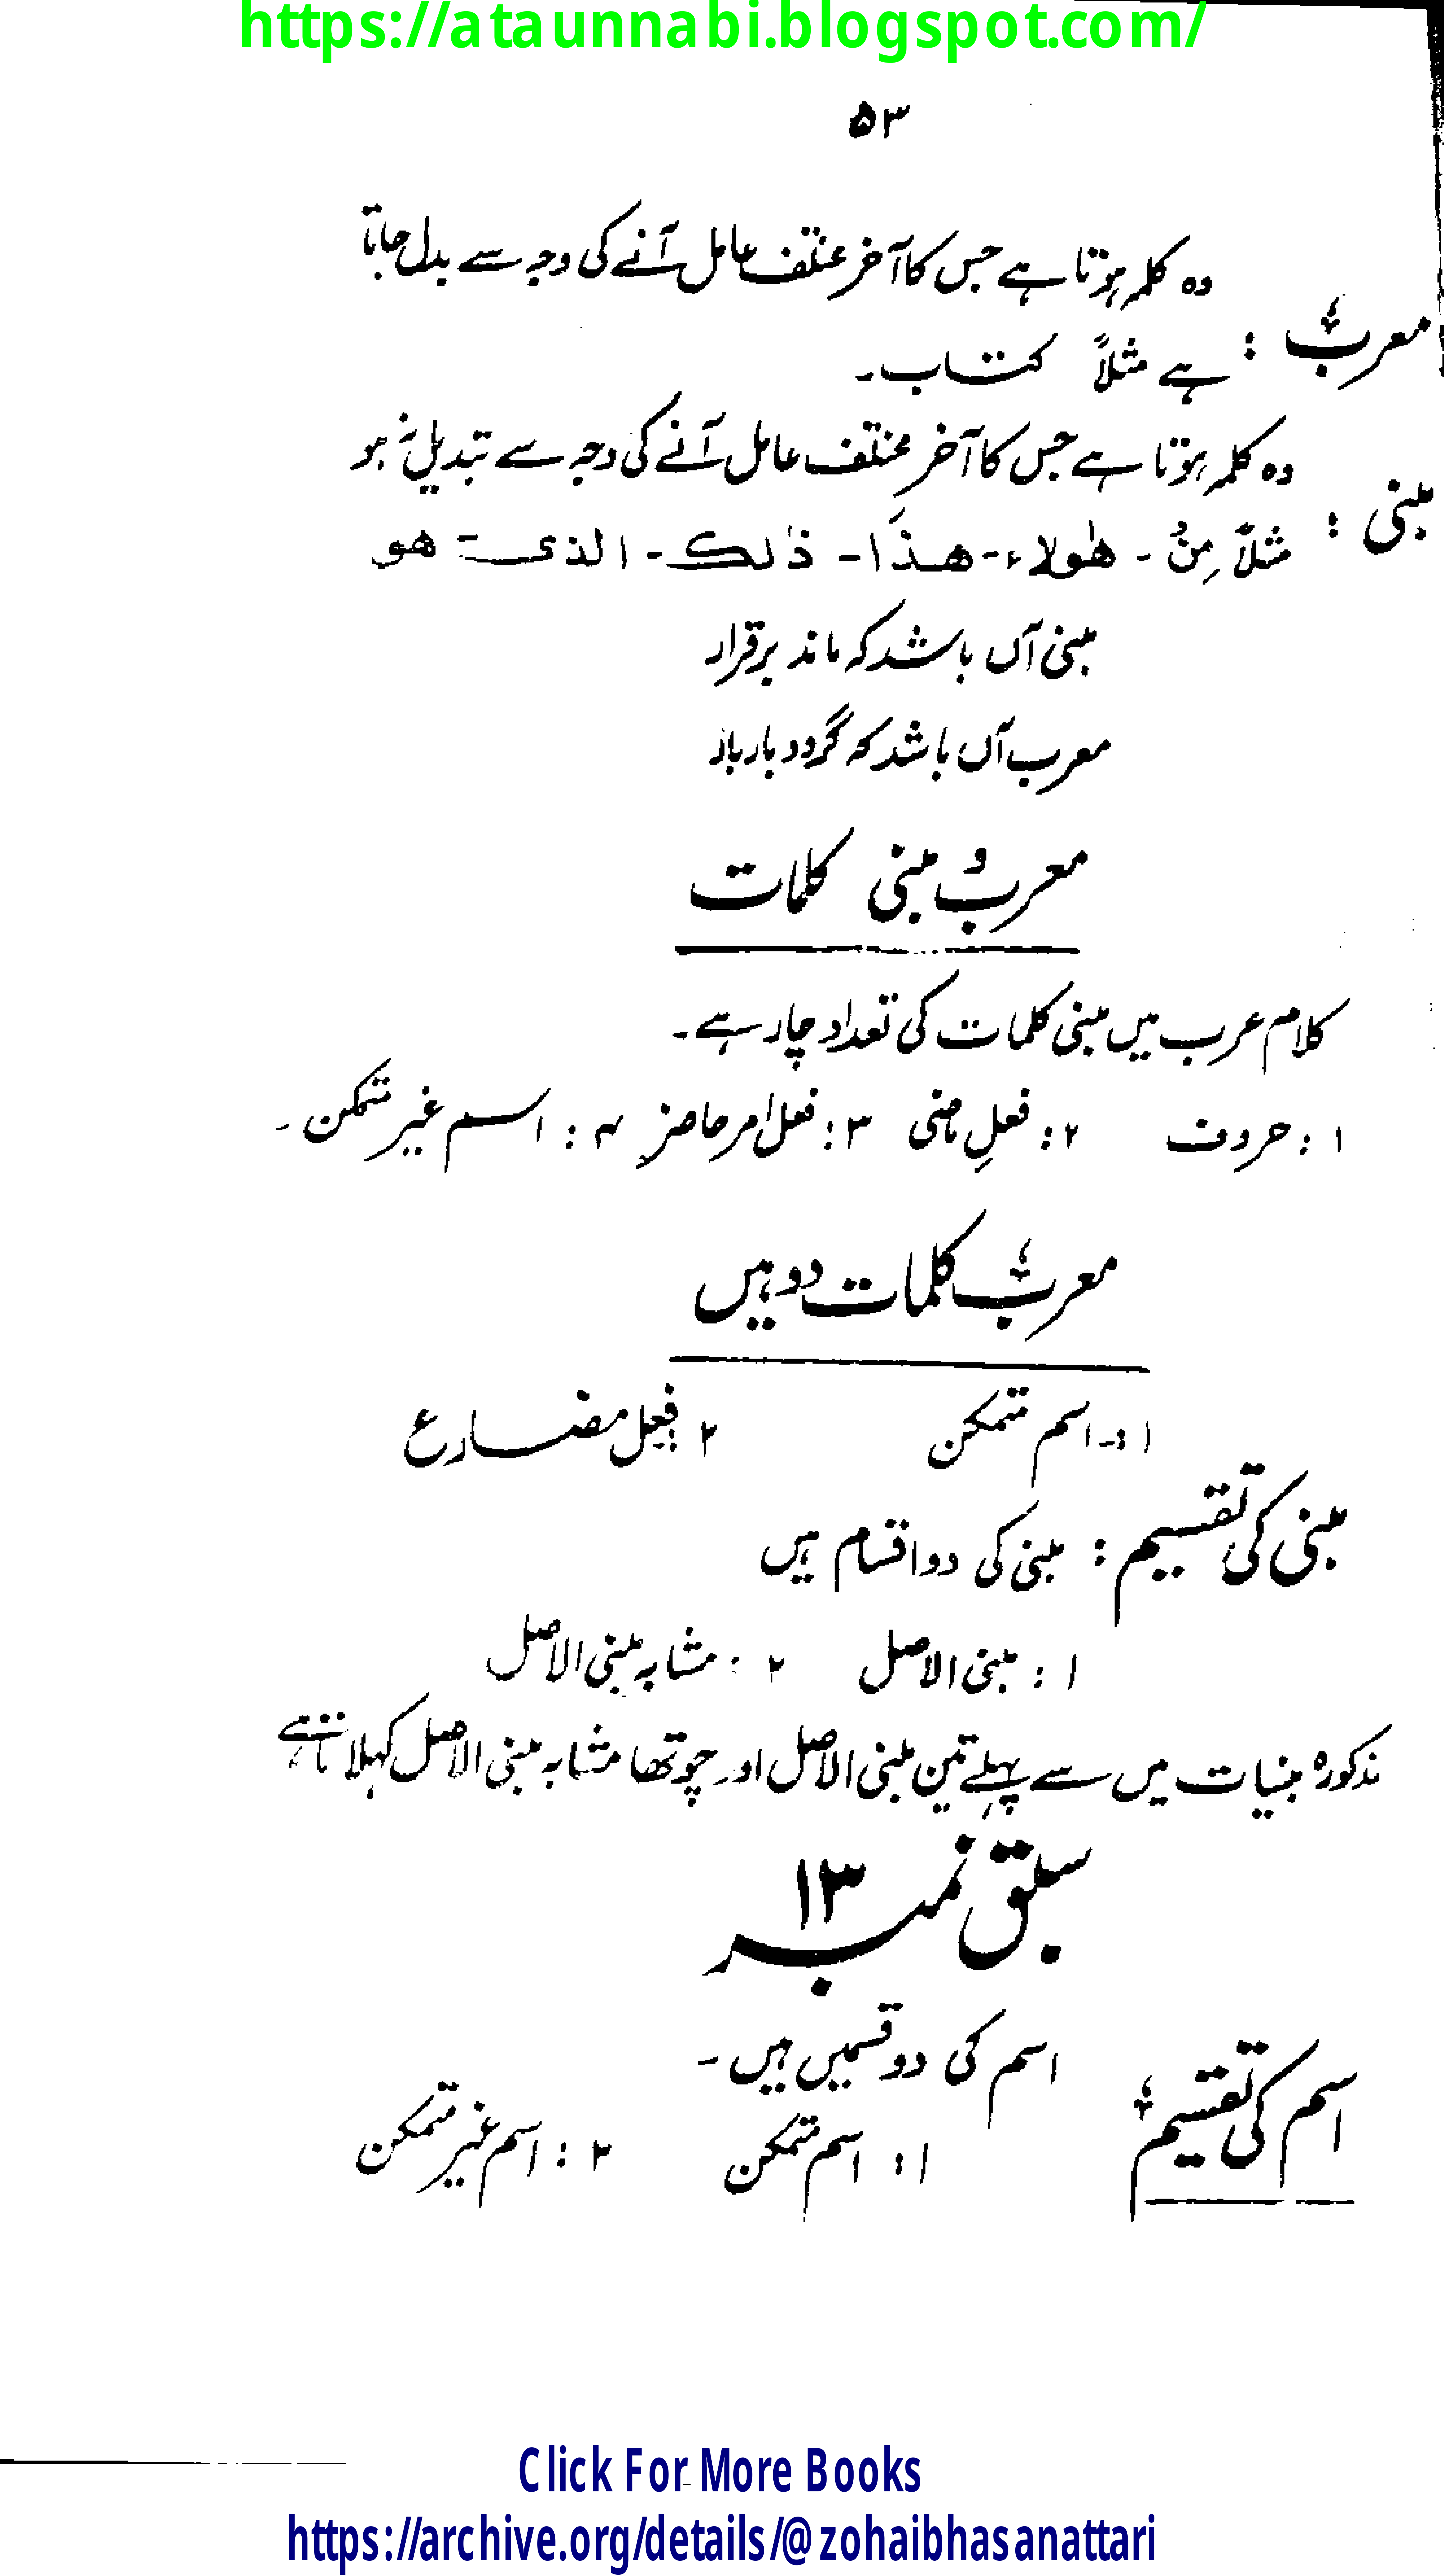 https://ataunnabi.blogspot.com/
۵۳
معرب : وہ کلمہ ہوتا ہے جس کا آخر مختلف عامل آنے کی وجہ سے بدل جاتا
ہے مثلاً کتاب۔
مبنی : وہ کلمہ ہوتا ہے جس کا آخر مختلف عامل آنے کی وجہ سے تبدیل نہ ہو
مثلاً مِنْ ۔ هٰولاء ۔ هذَا ۔ ذٰلك ۔ الذی ۔ هو
مبنی آں باشد کہ ماند برقرار
معرب آں باشد کہ گردد بار بار
معرب و مبنی کلمات
کلام عرب میں مبنی کلمات کی تعداد چار ہے۔
۱ : حروف ۲ : فعلِ ماضی ۳ : فعل امر حاضر ۴ : اسم غیر متمکن۔
معرب کلمات دو ہیں
۱ :۔ اسم متمکن ۲ : فعل مضارع
مبنی کی تقسیم : مبنی کی دو اقسام ہیں
۱ : مبنی الاصل ۲ : مشابہ مبنی الاصل
مذکورہ مبنیات میں سے پہلے تین مبنی الاصل اور چوتھا مشابہ مبنی الاصل کہلاتا ہے
سبق نمبر ۱۳
اسم کی تقسیم اسم کی دو قسمیں ہیں۔
۱ : اسم متمکن ۲ : اسم غیر متمکن
Click For More Books
https://archive.org/details/@zohaibhasanattari